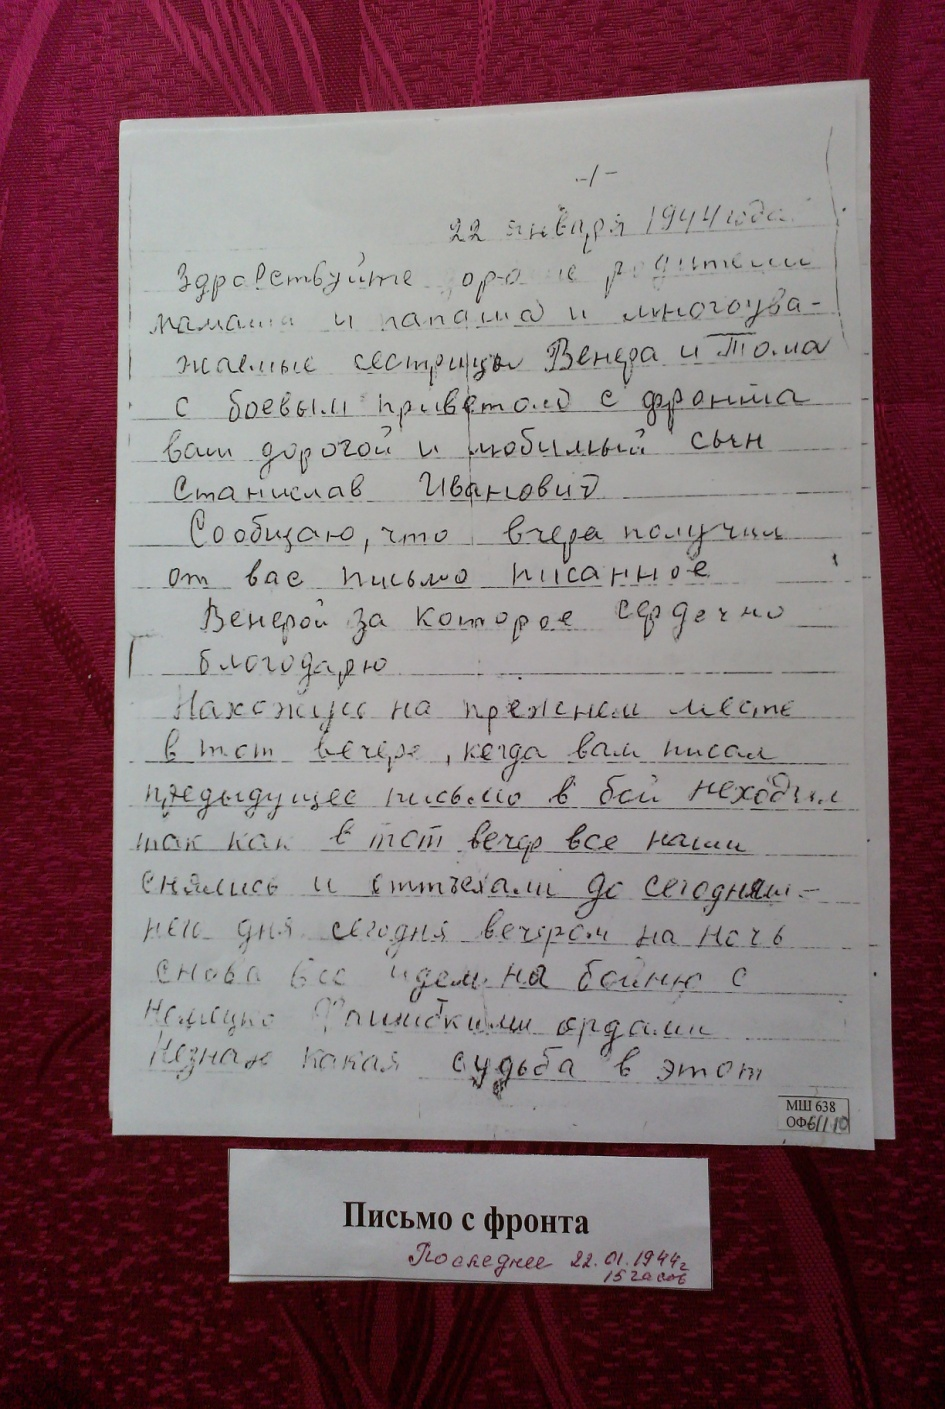 -1-
22 января 1944 года
Здравствуйте дорогие родители
мамаша и папаша и многоува-
жаемые сестрицы Венера и Тома
с боевым приветом с фронта
ваш дорогой и любимый сын
Станислав Иванович
Сообщаю, что вчера получил
от вас письмо писанное
Венерой за которое сердечно
благодарю
Нахожусь на прежнем месте
в тот вечере, когда вам писал
предыдущее письмо в бой неходил
так как в тот вечер все наши
снялись и оттъехали до сегодняш-
него дня сегодня вечером на ночь
снова все идем на бойню с
немецко фашисткими ордами
Незнаю какая судьба в этот
МШ 638
ОФ
Письмо с фронта
Последнее 22.01.1944г
15 часов